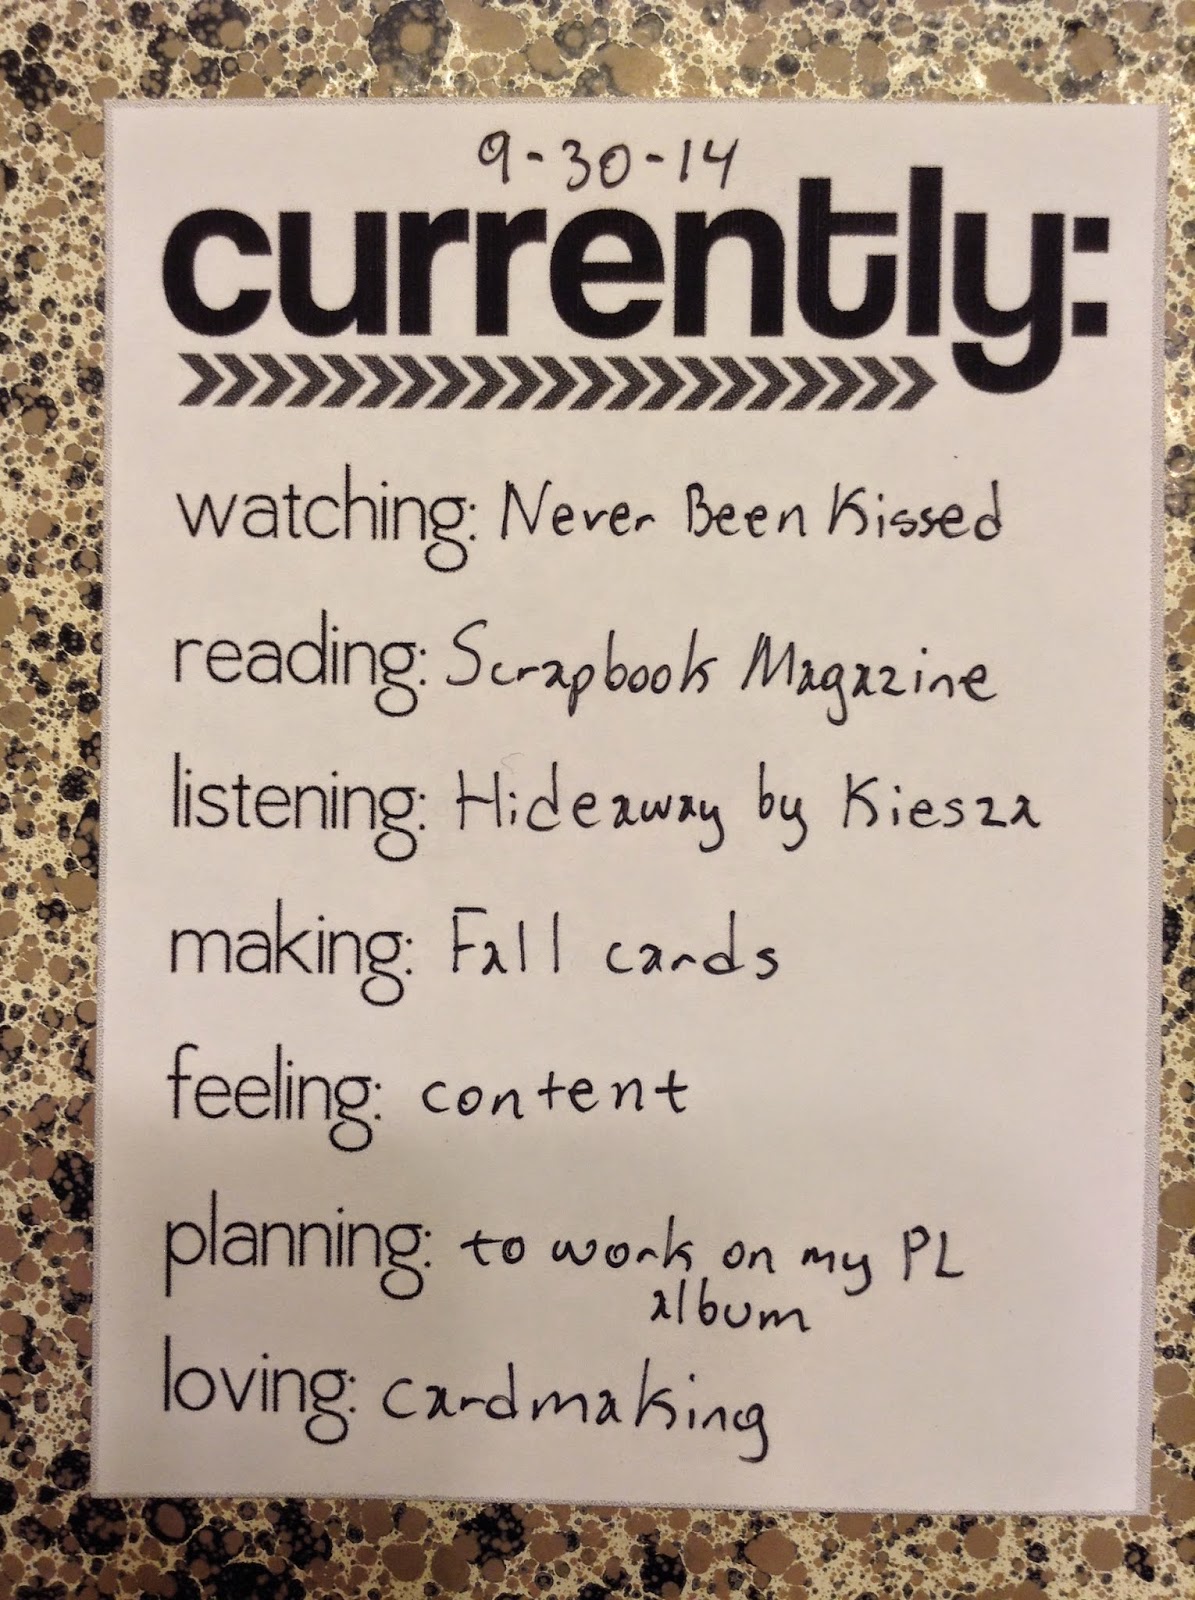 9-30-14
currently:
watching: Never Been Kissed
reading: Scrapbook Magazine
listening: Hideaway by Kiesza
making: Fall cards
feeling: content
planning: to work on my PL
album
loving: cardmaking